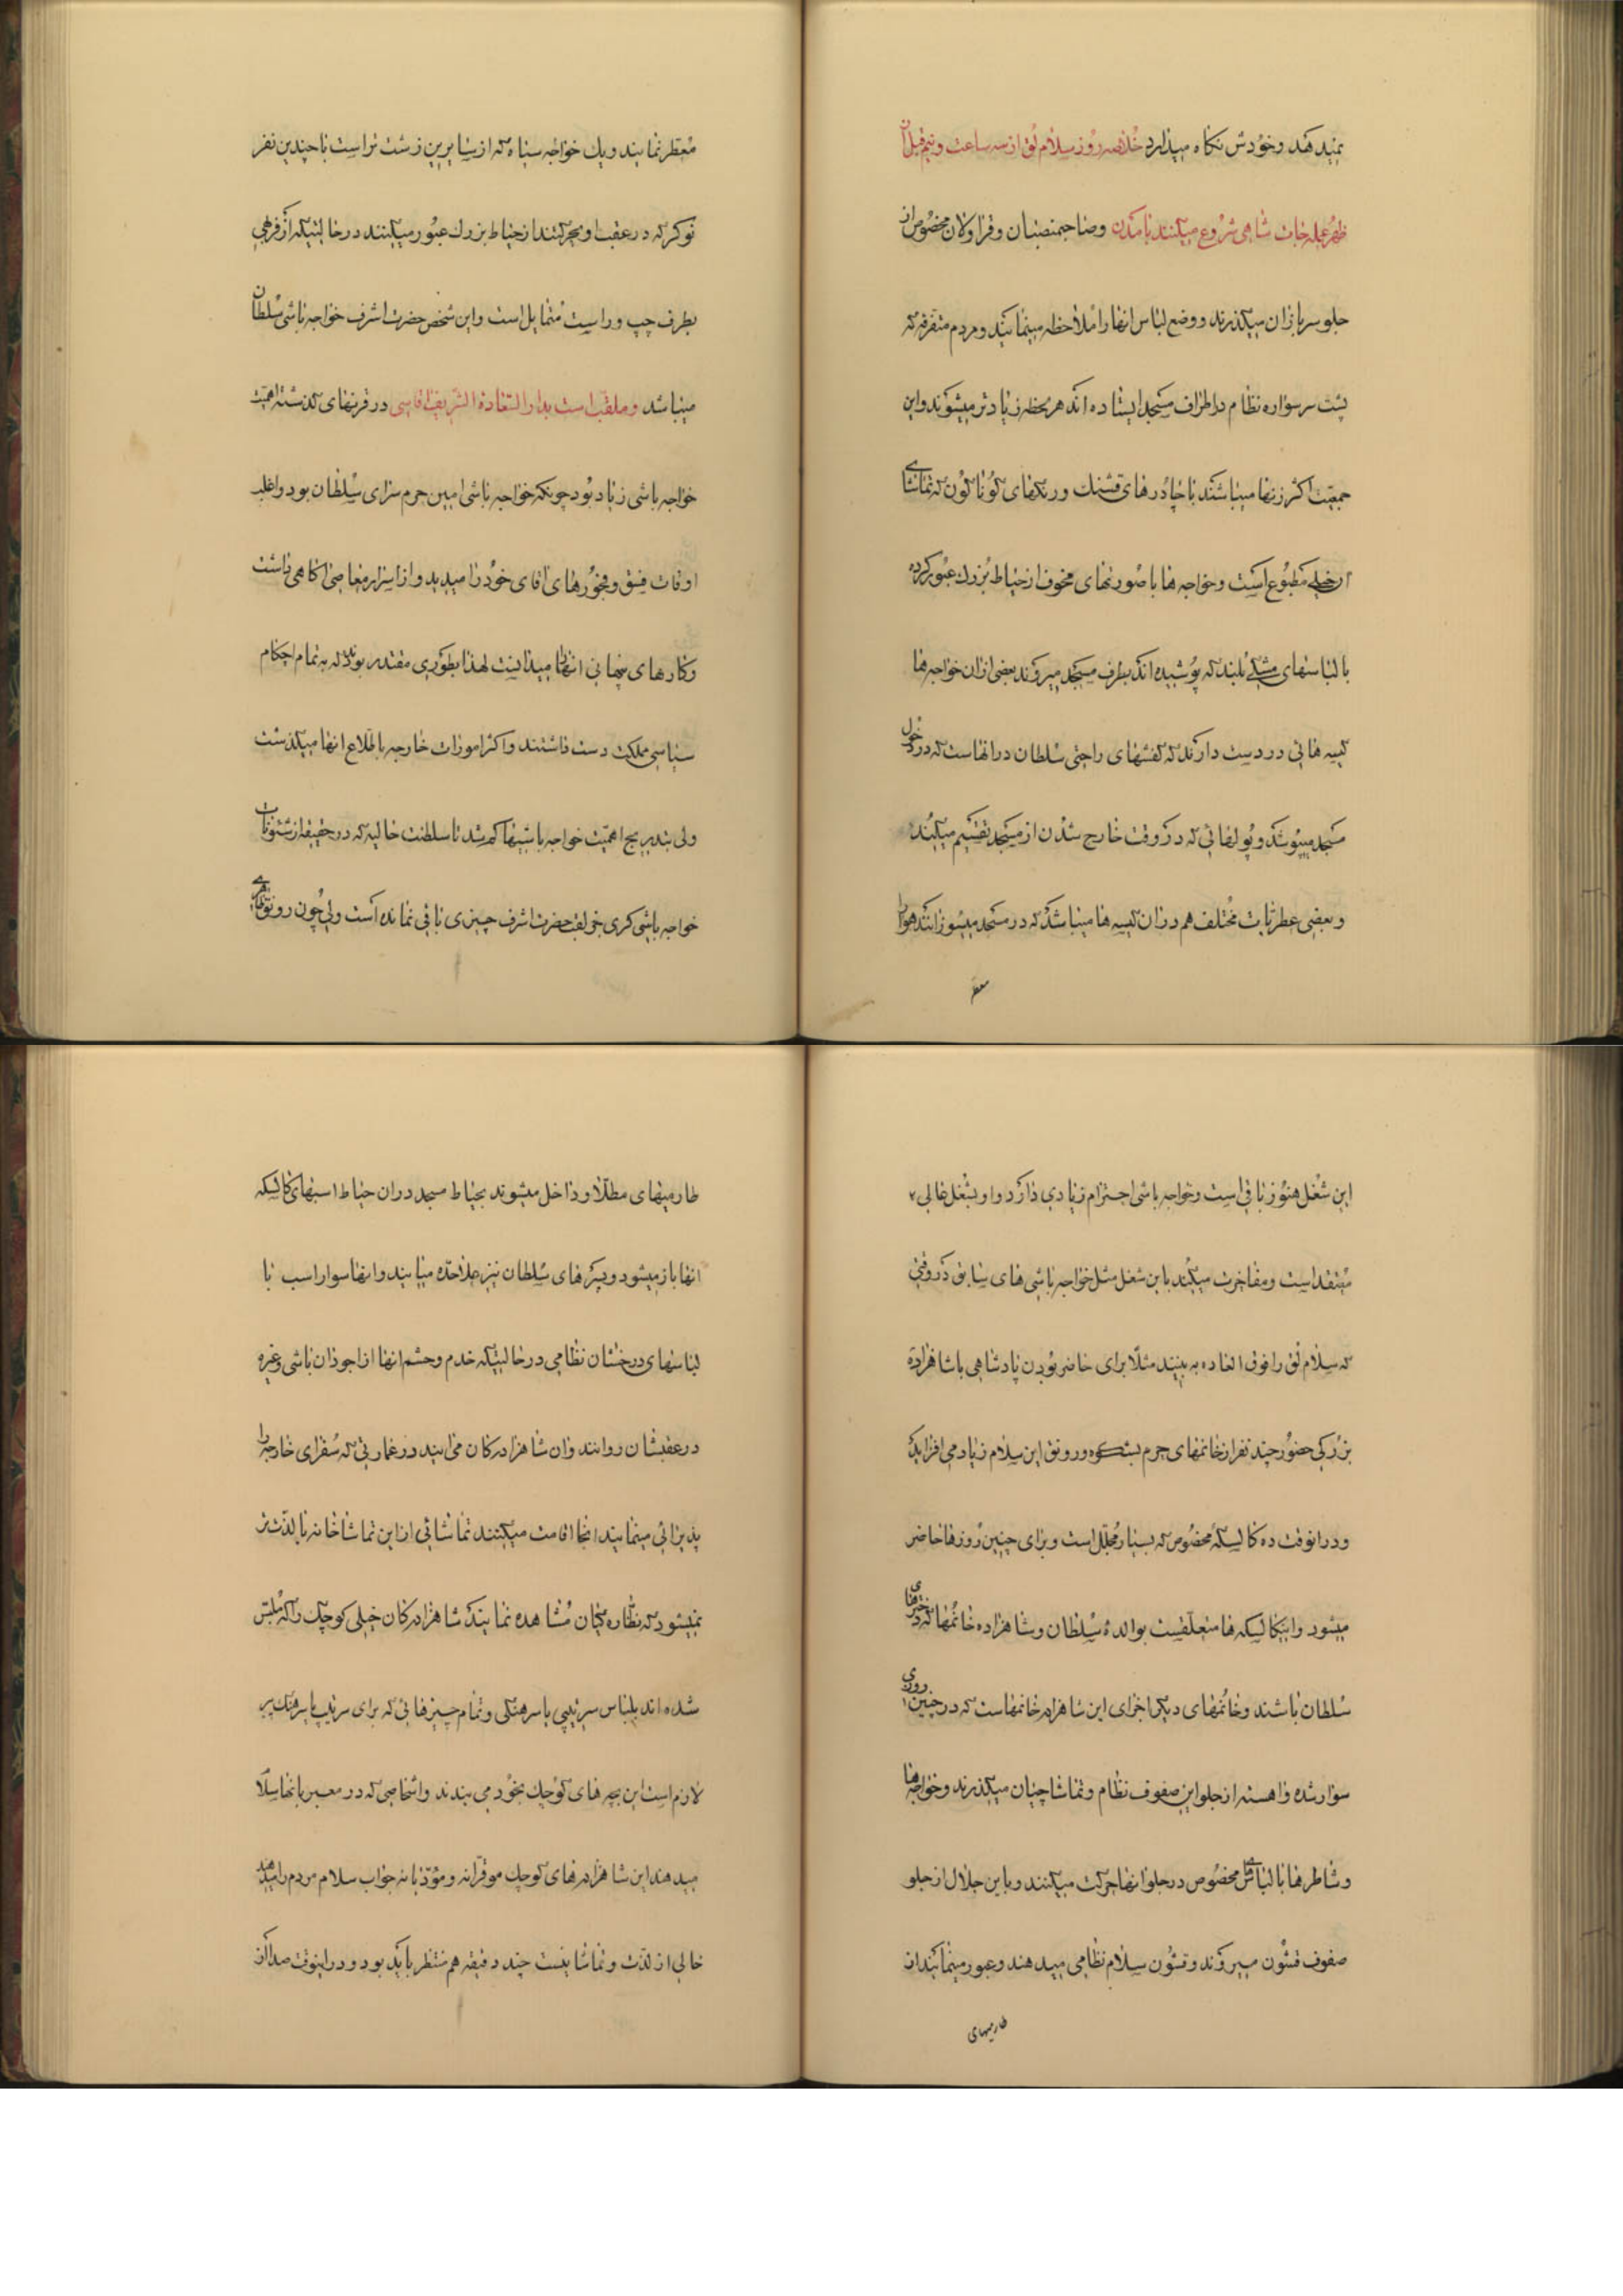 نمیدهد و خودش نگاه میدارد خلاصه روز سلام لق از سه ساعت و نیم قبل از
ظهر عمله‌جات شاهی شروع میکنند بآمدن و صاحبمنصبان و قراولان مخصوص از
جلو سربازان میگذرند و وضع لباس انها را ملاحظه مینمایند و مردم متفرقه که
پشت سر سواره نظام در اطراف مسجد ایستاده اند هر لحظه زیادتر میشوند و این
جمعیت اکثر زنها میباشند با چادرهای قشنگ و رنگهای گوناگون که تماشای
ان خیلی مطبوع است و خواجه ها با صورتهای مخوف از حیاط بزرگ عبور کرده
با لباسهای مشکی بلند که پوشیده اند بطرف مسجد میروند بعضی از ان خواجه ها
کیسه هائی در دست دارند که کفشهای راحتی سلطان در انهاست که در دخول
مسجد میپوشد و پولهائی که در وقت خارج شدن از مسجد تقسیم میکنند
و بعضی عطریات مختلف هم در ان کیسه ها میباشد که در مسجد میسوزانند هوا را
معطر
معطر نمایند و یک خواجه سیاه که از سایرین زشت تر است با چندین نفر
نوکر که در عقب او بحرکتند از حیاط بزرگ عبور میکنند در حالتیکه از فربهی
بطرف چپ و راست متمایل است و این شخص حضرت اشرف خواجه باشی سلطان
میباشد و ملقب است بدار السعادة الشریفه اقاسی در قرنهای گذشته اهمیت
خواجه باشی زیاد بود چونکه خواجه باشی امین حرم سرای سلطان بود و اغلب
اوقات فسق و فجورهای اقای خود را میدید و از اسرار معاصی اگاهی داشت
و کارهای پنهانی انها را میدانست لهذا بطوری مقتدر بودند که به تمام احکام
سیاسی مملکت دست داشتند و اکثر امورات خارجه باطلاع انها میگذشت
ولی بتدریج اهمیت خواجه باشیها کم شد تا سلطنت حالیه که در حقیقت از شئونات
خواجه باشی گری جز لقب حضرت اشرف چیزی باقی نمانده است ولی چون رونق ظاهری
این شغل هنوز باقی است و خواجه باشی احترام زیادی دارد و او بشغل عالی
معتقد است و مفاخرت میکند باین شغل مثل خواجه باشی های سابق در وقتی
که سلام لق را فوق العاده به بینند مثلا برای حاضر بودن پادشاهی یا شاهزاده
بزرگی حضور چند نفر از خانمهای حرم بشکوه و رونق این سلام زیاد می افزاید
و در انوقت ده کالسکه مخصوص که بسیار مجلل است و برای چنین روزها حاضر
میشود و اینکالسکه ها متعلقست بوالده سلطان و شاهزاده خانمها که دخترهای
سلطان باشند و خانمهای دیگر اجزای این شاهزاده خانمهاست که در چنین روزی
سوار شده و اهسته از جلو این صفوف نظام و تماشاچیان میگذرند و خواجه ها
و شاطرها با لباسهای مخصوص در جلو انها حرکت میکنند و باین جلال از جلو
صفوف قشون میروند و قشون سلام نظامی میدهند و عبور مینمایند از
طارمیهای
طارمیهای مطلا و داخل میشوند بحیاط مسجد در ان حیاط اسبهای کالسکه
انها باز میشود و پسرهای سلطان نیز علاحده میایند و انها سوار اسب با
لباسهای درخشان نظامی در حالتیکه خدم و حشم انها از اجودان باشی و غیره
در عقبشان روانند و ان شاهزادگان می ایند در عمارتی که سفرای خارجه را
پذیرائی مینمایند انجا اقامت میکنند تماشائی از این تماشاخانه با لذت تر
نمیشود که نظاره کنان مشاهده نمایند شاهزادگان خیلی کوچک را که ملبس
شده اند بلباس سرتیپی یا سرهنگی و تمام چیزهائی که برای سرتیپ یا سرهنگ پیر
لازم است این بچه های کوچک بخود می بندند و اشخاصی که در معبر بانها سلام
میدهند این شاهزاده های کوچک موقرانه و مؤدبانه جواب سلام مردم را میدهند
خالی از لذت و تماشا نیست چند دقیقه هم منتظر باید بود و در اینوقت صدای